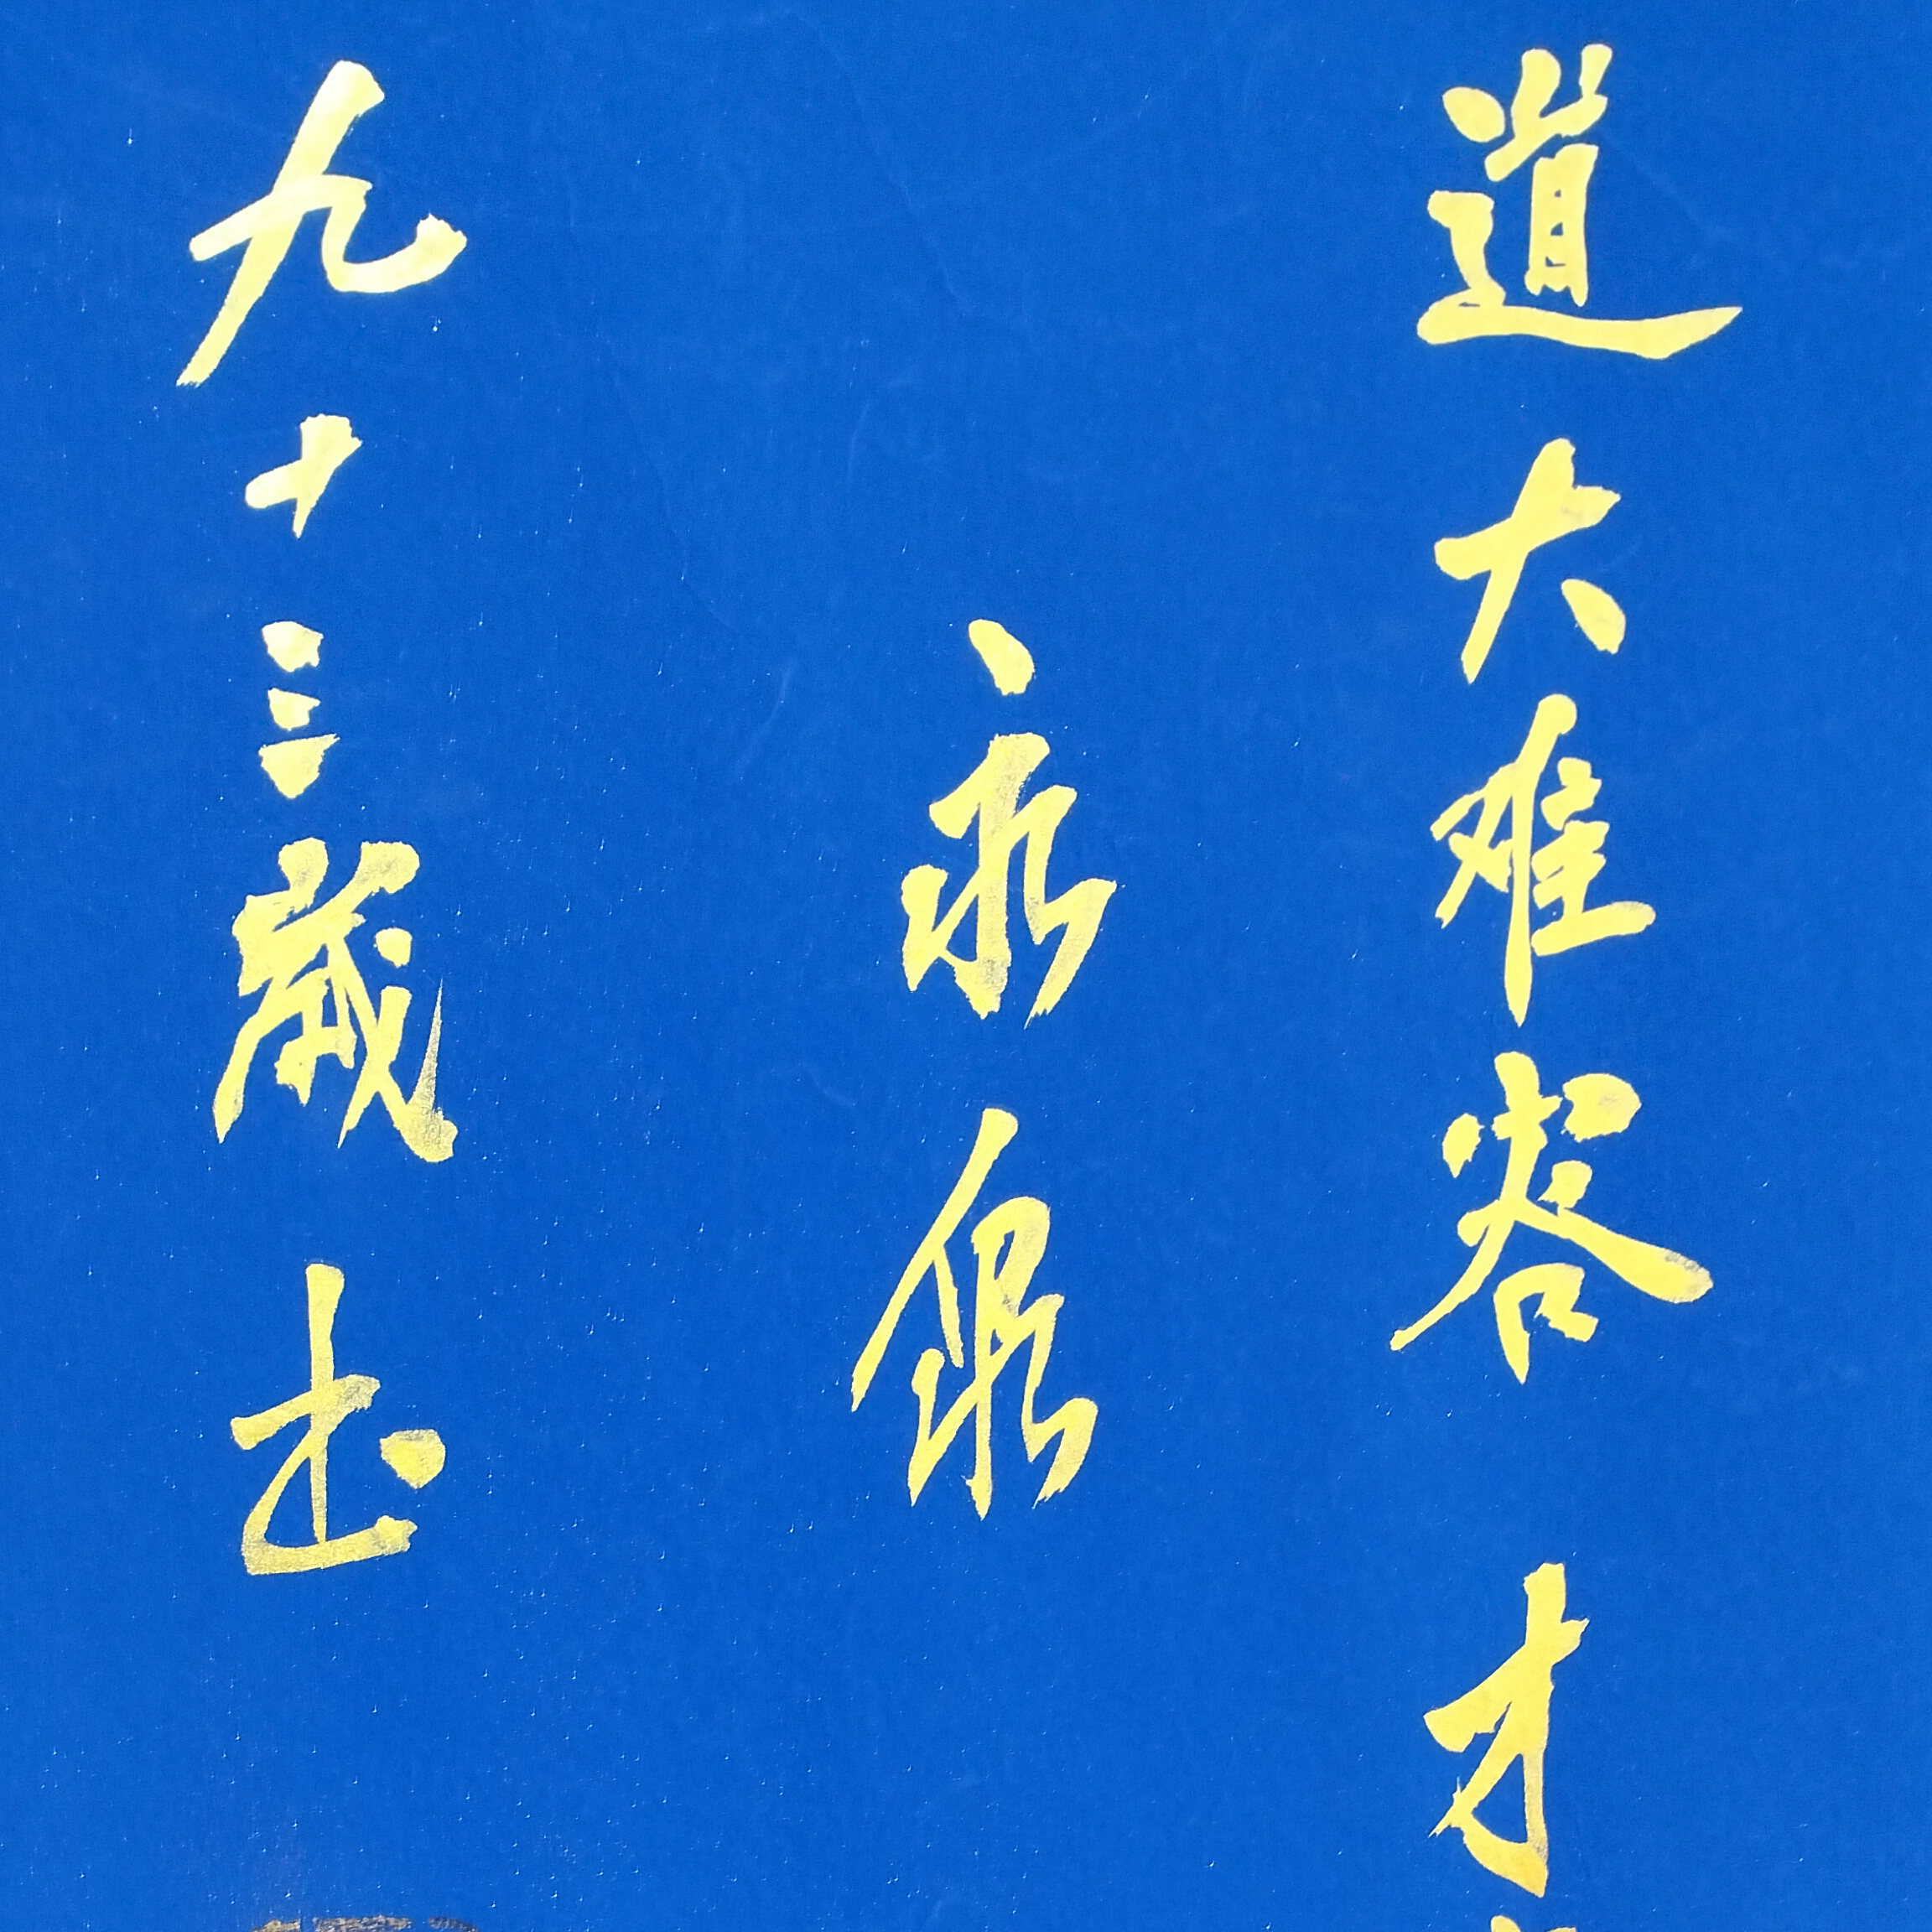 道大难容 才
永泉
九十三歲书